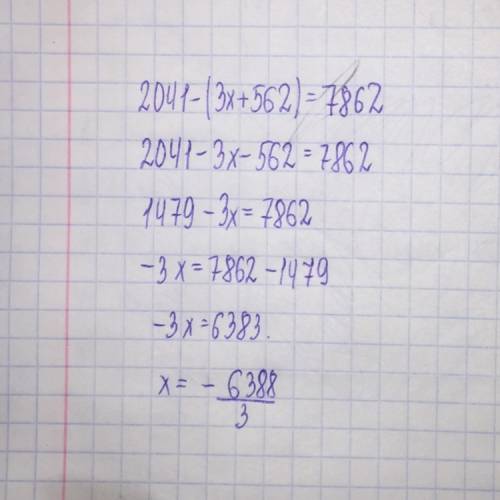 2041-(3x+562)=7862
2041-3x-562=7862
1479-3x=7862
-3x=7862-1479
-3x=6383.
x= - 6388/3